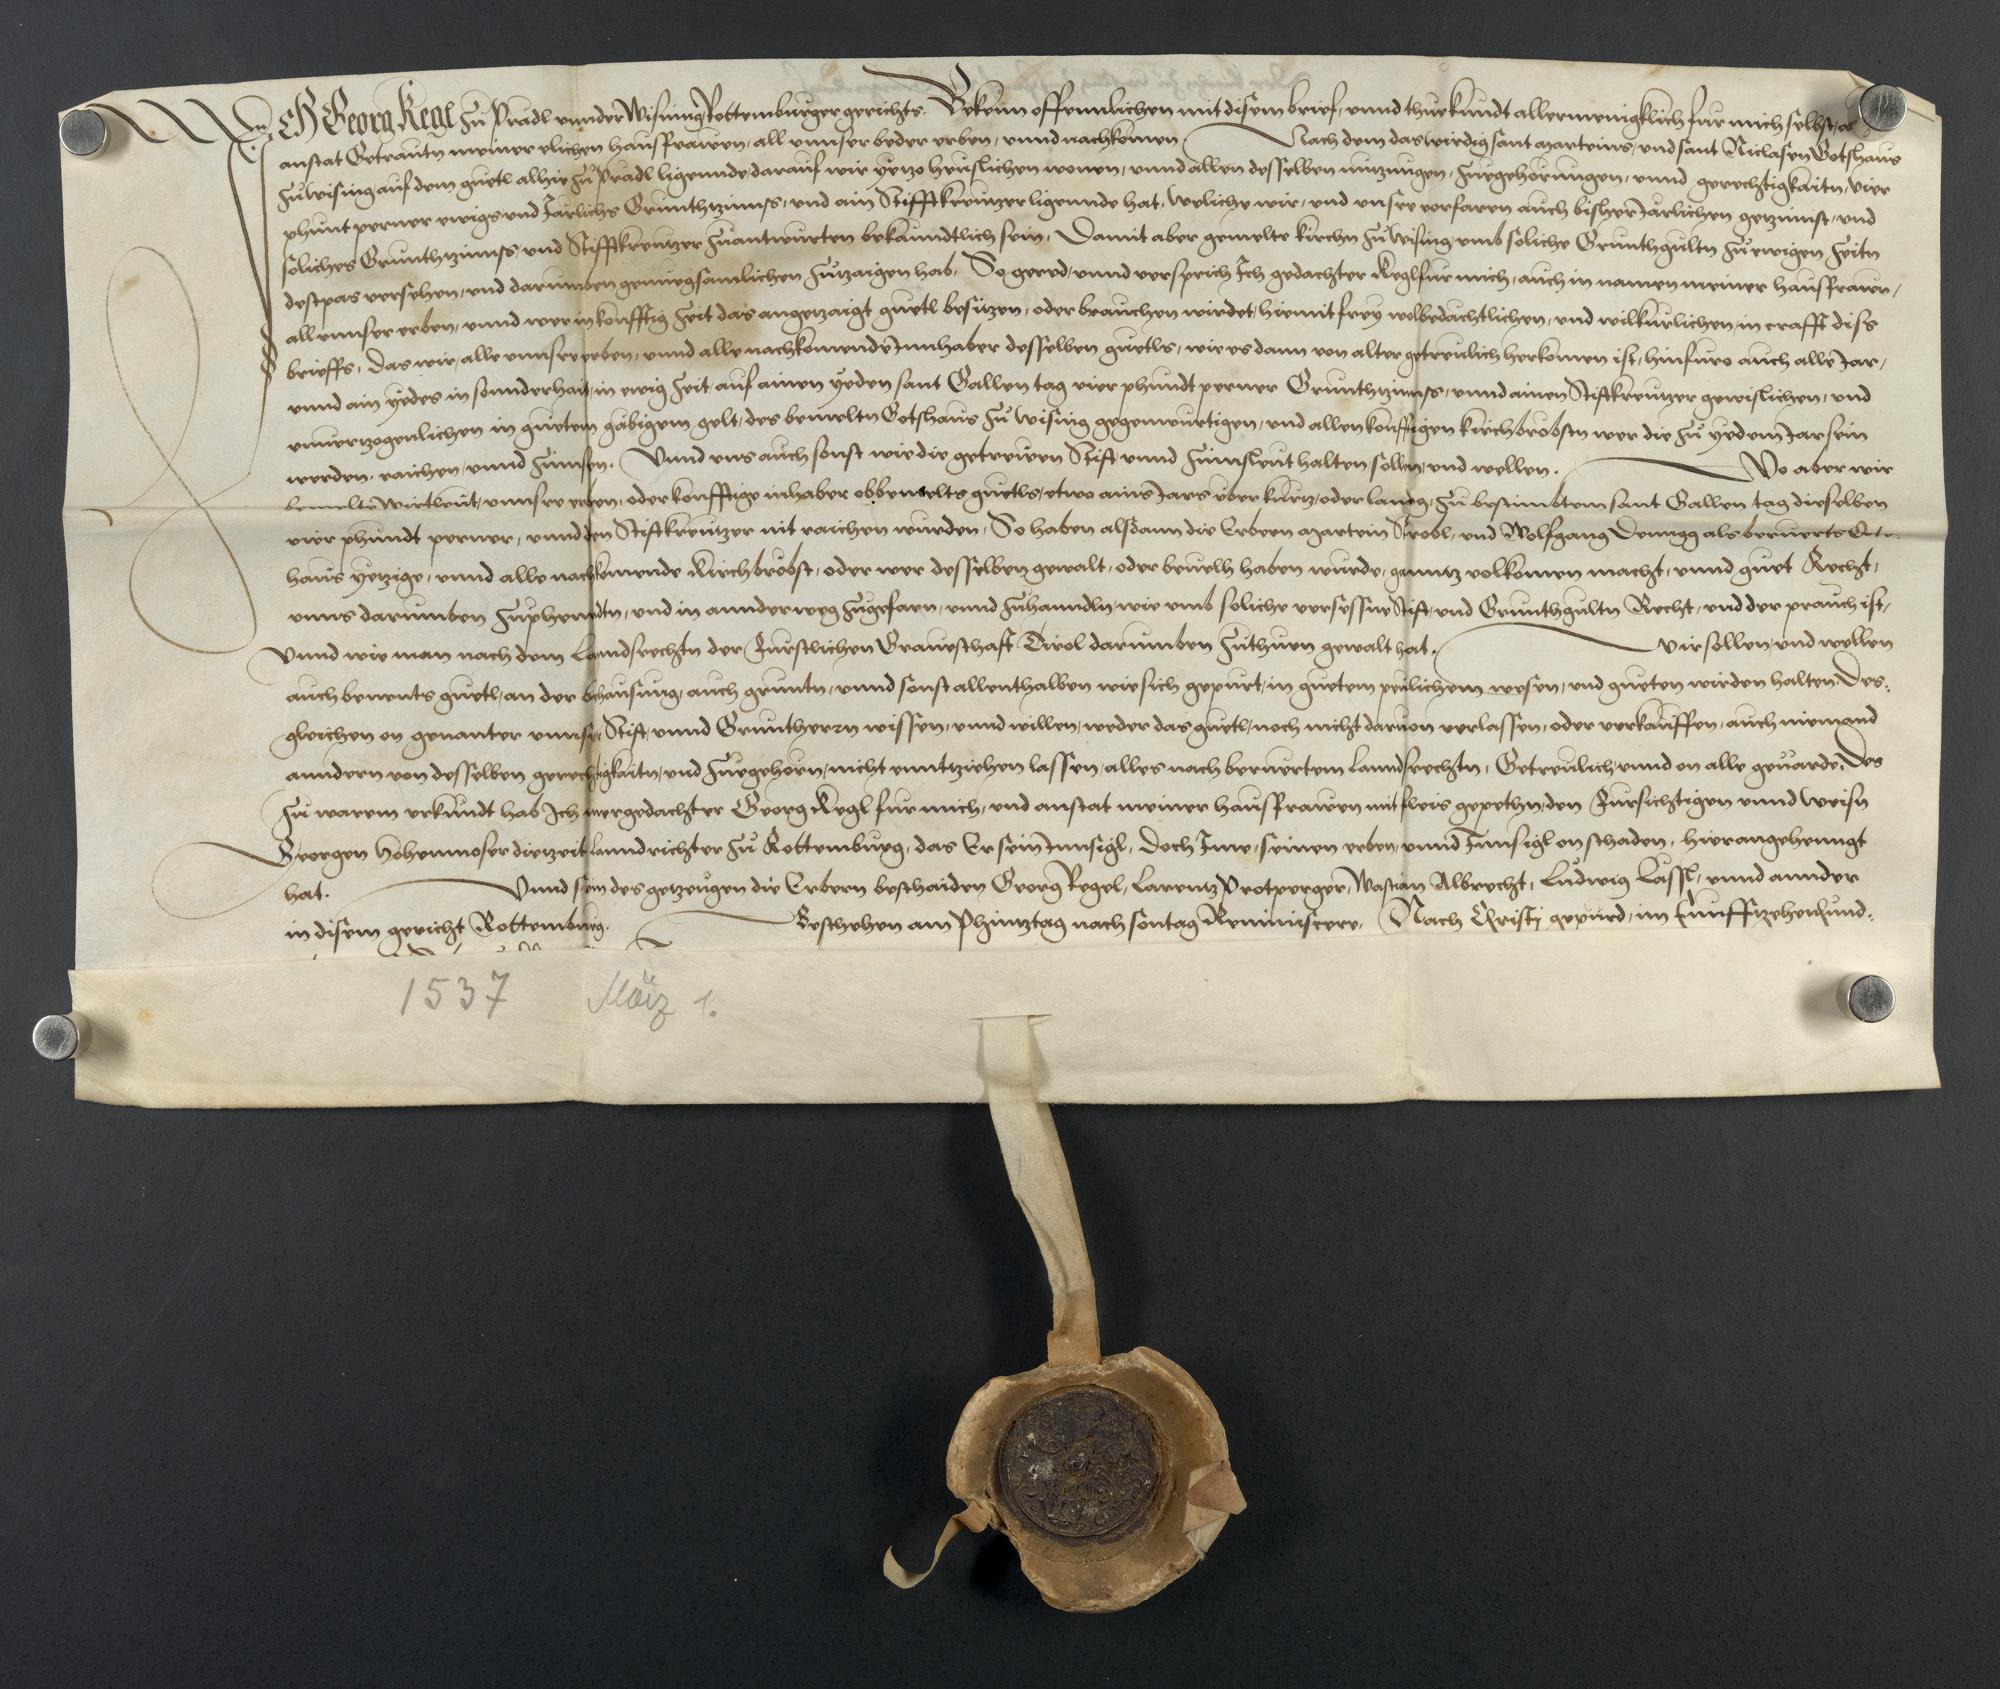 Ich Georg Regl zu Pradl unnder Wisinng Rottemburger gerichts. Bekenn offennlichen mit disem brief, unnd thue kundt allermenigklich fur mich selbst, und
anstat Getrautn meiner elichen hausfrawen, all unnser beder erben, unnd nachkomen Nach dem das wirdig sant Marteins, und sant Niclasen Gotshaus
zu Wising auf dem guetl alhie zu Pradl ligennde, darauf wir yetzo heuslichen wonen, unnd allen desselben nutzungen, zuegehorungen, unnd gerechtigkaitn, vier
phunt perner ewigs und Järlichs Grunthzinnss, und ain Stifftkreutzer ligennde hat, weliche wir, und unsre vorfaren auch bisher Järlichen getzinnst, und
soliches Grunthzinnss, und Stifftkreutzer zuantwurten bekanndtlich sein, Damit aber gemelte kirchn zu Wising, umb soliche Grunthgultn zu ewigen zeitn
destpas versehen, und darumben genuegsamlichen zutzaigen hab, So gered, unnd versprich Ich gedachter Regl fur mich, auch in namen meiner hausfrawn,
all unnser erben, unnd wer in konfftig zeit das angetzaigt guetl besitzen, oder brauchen wirdet, hiemit frey wolbedächtlichen, und wilkürlichen, in crafft diss
brieffs, Das wir, alle unnsre erben, unnd alle nachkomende Innhaber desselben guetls, wie es dann von alter getreulich herkomen ist, hinfuro auch alle Jar,
unnd ain yedes in sonnderhait, in ewig zeit, auf ainen yeden sant Gallen tag vier phundt perner Grunthzinnss, unnd ainen Stiftkreutzer gewislichen, und
unvertzogenlichen in guetem gäbigem gelt, des bemeltn Gotshaus zu Wising gegenwurtigen, und allen konfftigen kirchbröbstn wer die zu yedem Jar sein
werden, raichen, unnd zinnsen. Unnd uns auch sonst wie die getrewen Stift, unnd zinnsleut halten, sollen, und wellen. Wo aber wir
bemelte wirtleut, unnsre erben, oder konfftige inhaber obbemelts guetls, etwo ains Jars uber kurtz, oder lanng, zu bestimbtem sant Gallen tag dieselben
vier phundt perner, unnd den Stiftkreutzer nit raichen wurden, So haben alsdann die Erbern Martein Strobl, und Wolfgang als beruerts Gots
haus yetzige, unnd alle nachkomende Kirchbröbst, oder wer desselben gewalt, oder bevelh haben wurde, ganntz volkomen macht, unnd guet Recht,
unns darumben zuphenndtn, und in annder weg zugefaren, unnd zuhanndln, wie umb soliche versessne Stift, und Grunthgultn Recht, und der prauch ist,
Unnd wie man nach dem Lanndsrechtn der Furstlichen Graveschaft Tirol darumben zuthuen gewalt hat. Wir sollen, und wellen
auch benents guetl, an der behausung, auch gruntn, unnd sonst allenthalben wie sich gepurt, in guetem peulichem wesen, und gueten wirden halten. Des,
gleichen on genanter unnser Stift, unnd Grunthern wissen, unnd willen, weder das guetl, noch nicht darvon verlassen, oder verkauffen, auch niemand
anndern von desselben gerechtigkaitn, und zuegehorn, nicht enntziehen lassen, alles nach beruertem lanndsrechtn, Getreulich, unnd on alle gevärde, Des
zu warem urkundt hab Ich mergedachter Georg Regl fur mich, und anstat meiner hausfrawen mit vleis gepethn, den Fursichtigen unnd weisn
Georgen Hohenmoser dietzeit lanndrichter zu Rottemburg, das Er sein Innsigl, doch Ime, seinen erben, unnd Innsigl on schaden, hieran gehenngt
hat. Unnd sein des getzeugen die Erbern beschaiden Georg Regel, Larentz Protperger, Wastian Albrecht, Ludwig Lässl, unnd annder
in disem gericht Rottemburg. Beschehen am Phintztag nach sontag Reminiscere, Nach Cristj gepurd, im funfftzehenhund,
1537 März 1.